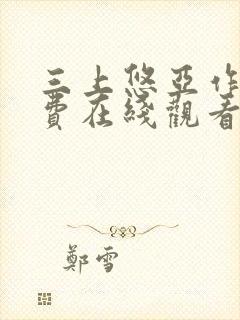 三上悠亚作
費在綫觀看
鄭雪